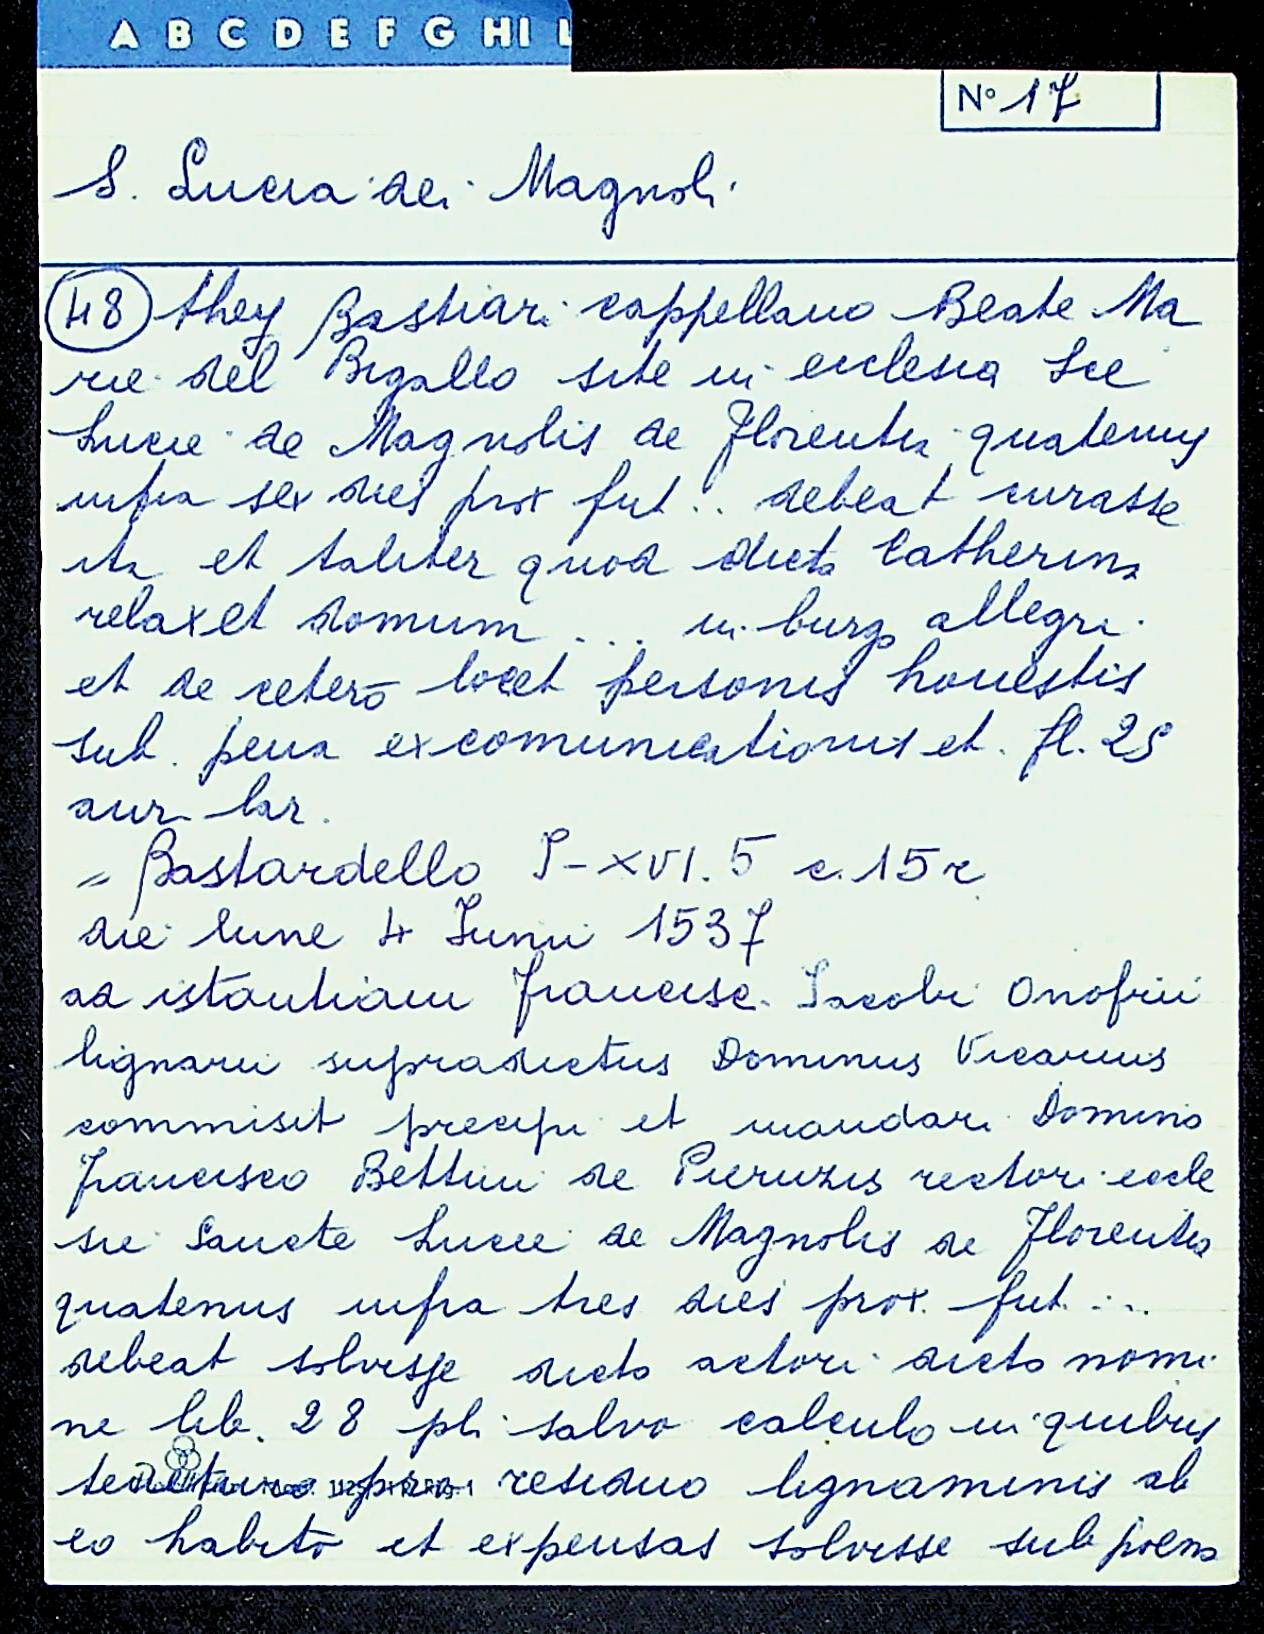 A B C D E F G HI L
N° 17
S. Lucia dei Magnoli
48 they Bastiani cappellano Beate Ma
rie del Bigallo site in ecclesia Sce
Lucie de Magnolis de Florentia quatenus
infra sex dies prox fut... debeat curasse
ita et taliter quod dicta Catherina
relaxet domum ... in burgo allegri
et de cetero locet personis honestis
sub pena excomunicationis et fl. 25
auri lar.
= Bastardello I-XVI. 5 c. 15 r
die lune 4 Iunii 1537
ad istantiam Francisci Iacobi Onofrii
lignarii supradictus Dominus Vicarius
commisit precipi et mandari Domino
Francisco Bettini de Pieruzis rectori eccle
sie Sancte Lucie de Magnolis de Florentia
quatenus infra tres dies prox. fut. ...
debeat solvisse dicto actori dicto nomi
ne lib. 28 pli salvo calculo in quibus
tenetur pro residuo lignaminis ab
eo habito et expensas solvisse sub poena